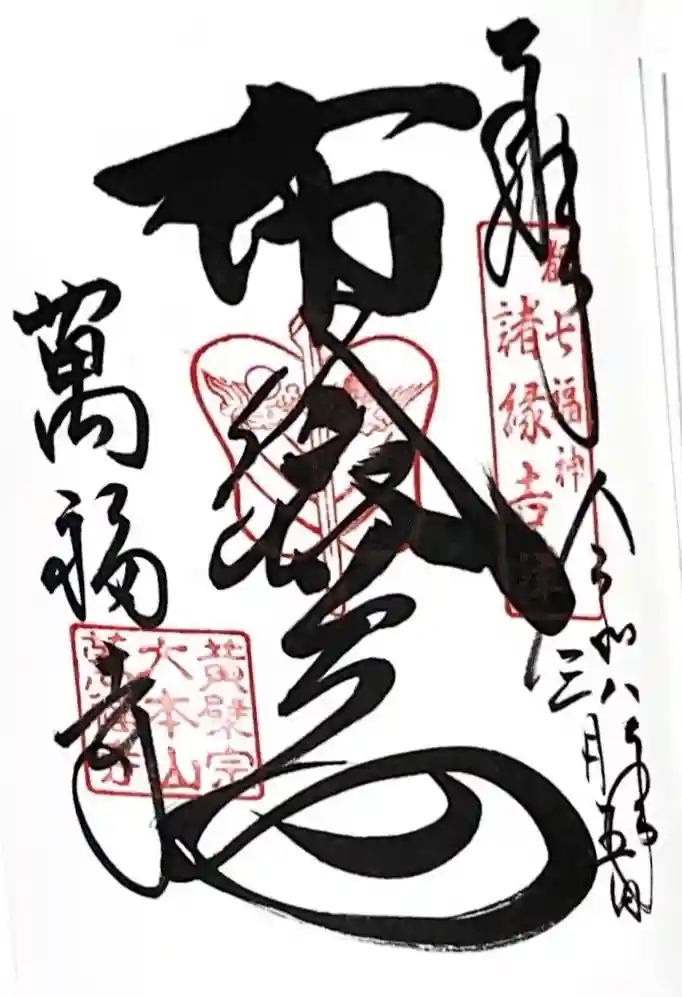 奉拝
都七福神
諸縁吉祥
令和八年
三月五日
布袋尊
萬福寺
黄檗宗
大本山
萬福寺